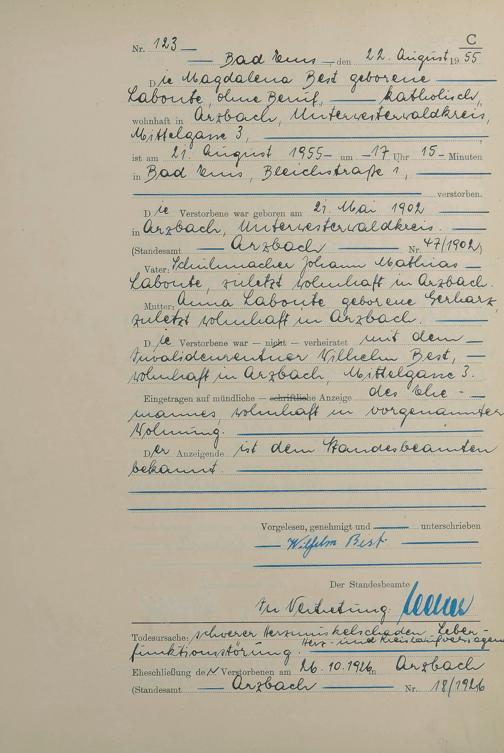 C
Nr. 123
Bad Ems, den 22. August 1955
Die Magdalena Best geborene
Labonte, ohne Beruf, katholisch,
wohnhaft in Arzbach, Unterwesterwaldkreis,
Mittelgasse 3,
ist am 21. August 1955 um 17 Uhr 15 Minuten
in Bad Ems, Bleichstraße 1,
verstorben.
Die Verstorbene war geboren am 21. Mai 1902
in Arzbach, Unterwesterwaldkreis.
(Standesamt Arzbach Nr. 47/1902)
Vater: Schuhmacher Johann Mathias
Labonte, zuletzt wohnhaft in Arzbach.
Mutter: Anna Labonte geborene Gerharz,
zuletzt wohnhaft in Arzbach.
Die Verstorbene war — nicht — verheiratet mit dem
Invalidenrentner Wilhelm Best,
wohnhaft in Arzbach, Mittelgasse 3.
Eingetragen auf mündliche — schriftliche Anzeige des Ehe-
mannes, wohnhaft in vorgenannter
Wohnung.
Der Anzeigende ist dem Standesbeamten
bekannt.
Vorgelesen, genehmigt und unterschrieben
Wilhelm Best
Der Standesbeamte
In Vertretung:
Todesursache: schwerer Herzmuskelschaden, Leber-
funktionsstörung. Herz- und Kreislaufversagen
Eheschließung der Verstorbenen am 26.10.1926 in Arzbach
(Standesamt Arzbach Nr. 18/1926